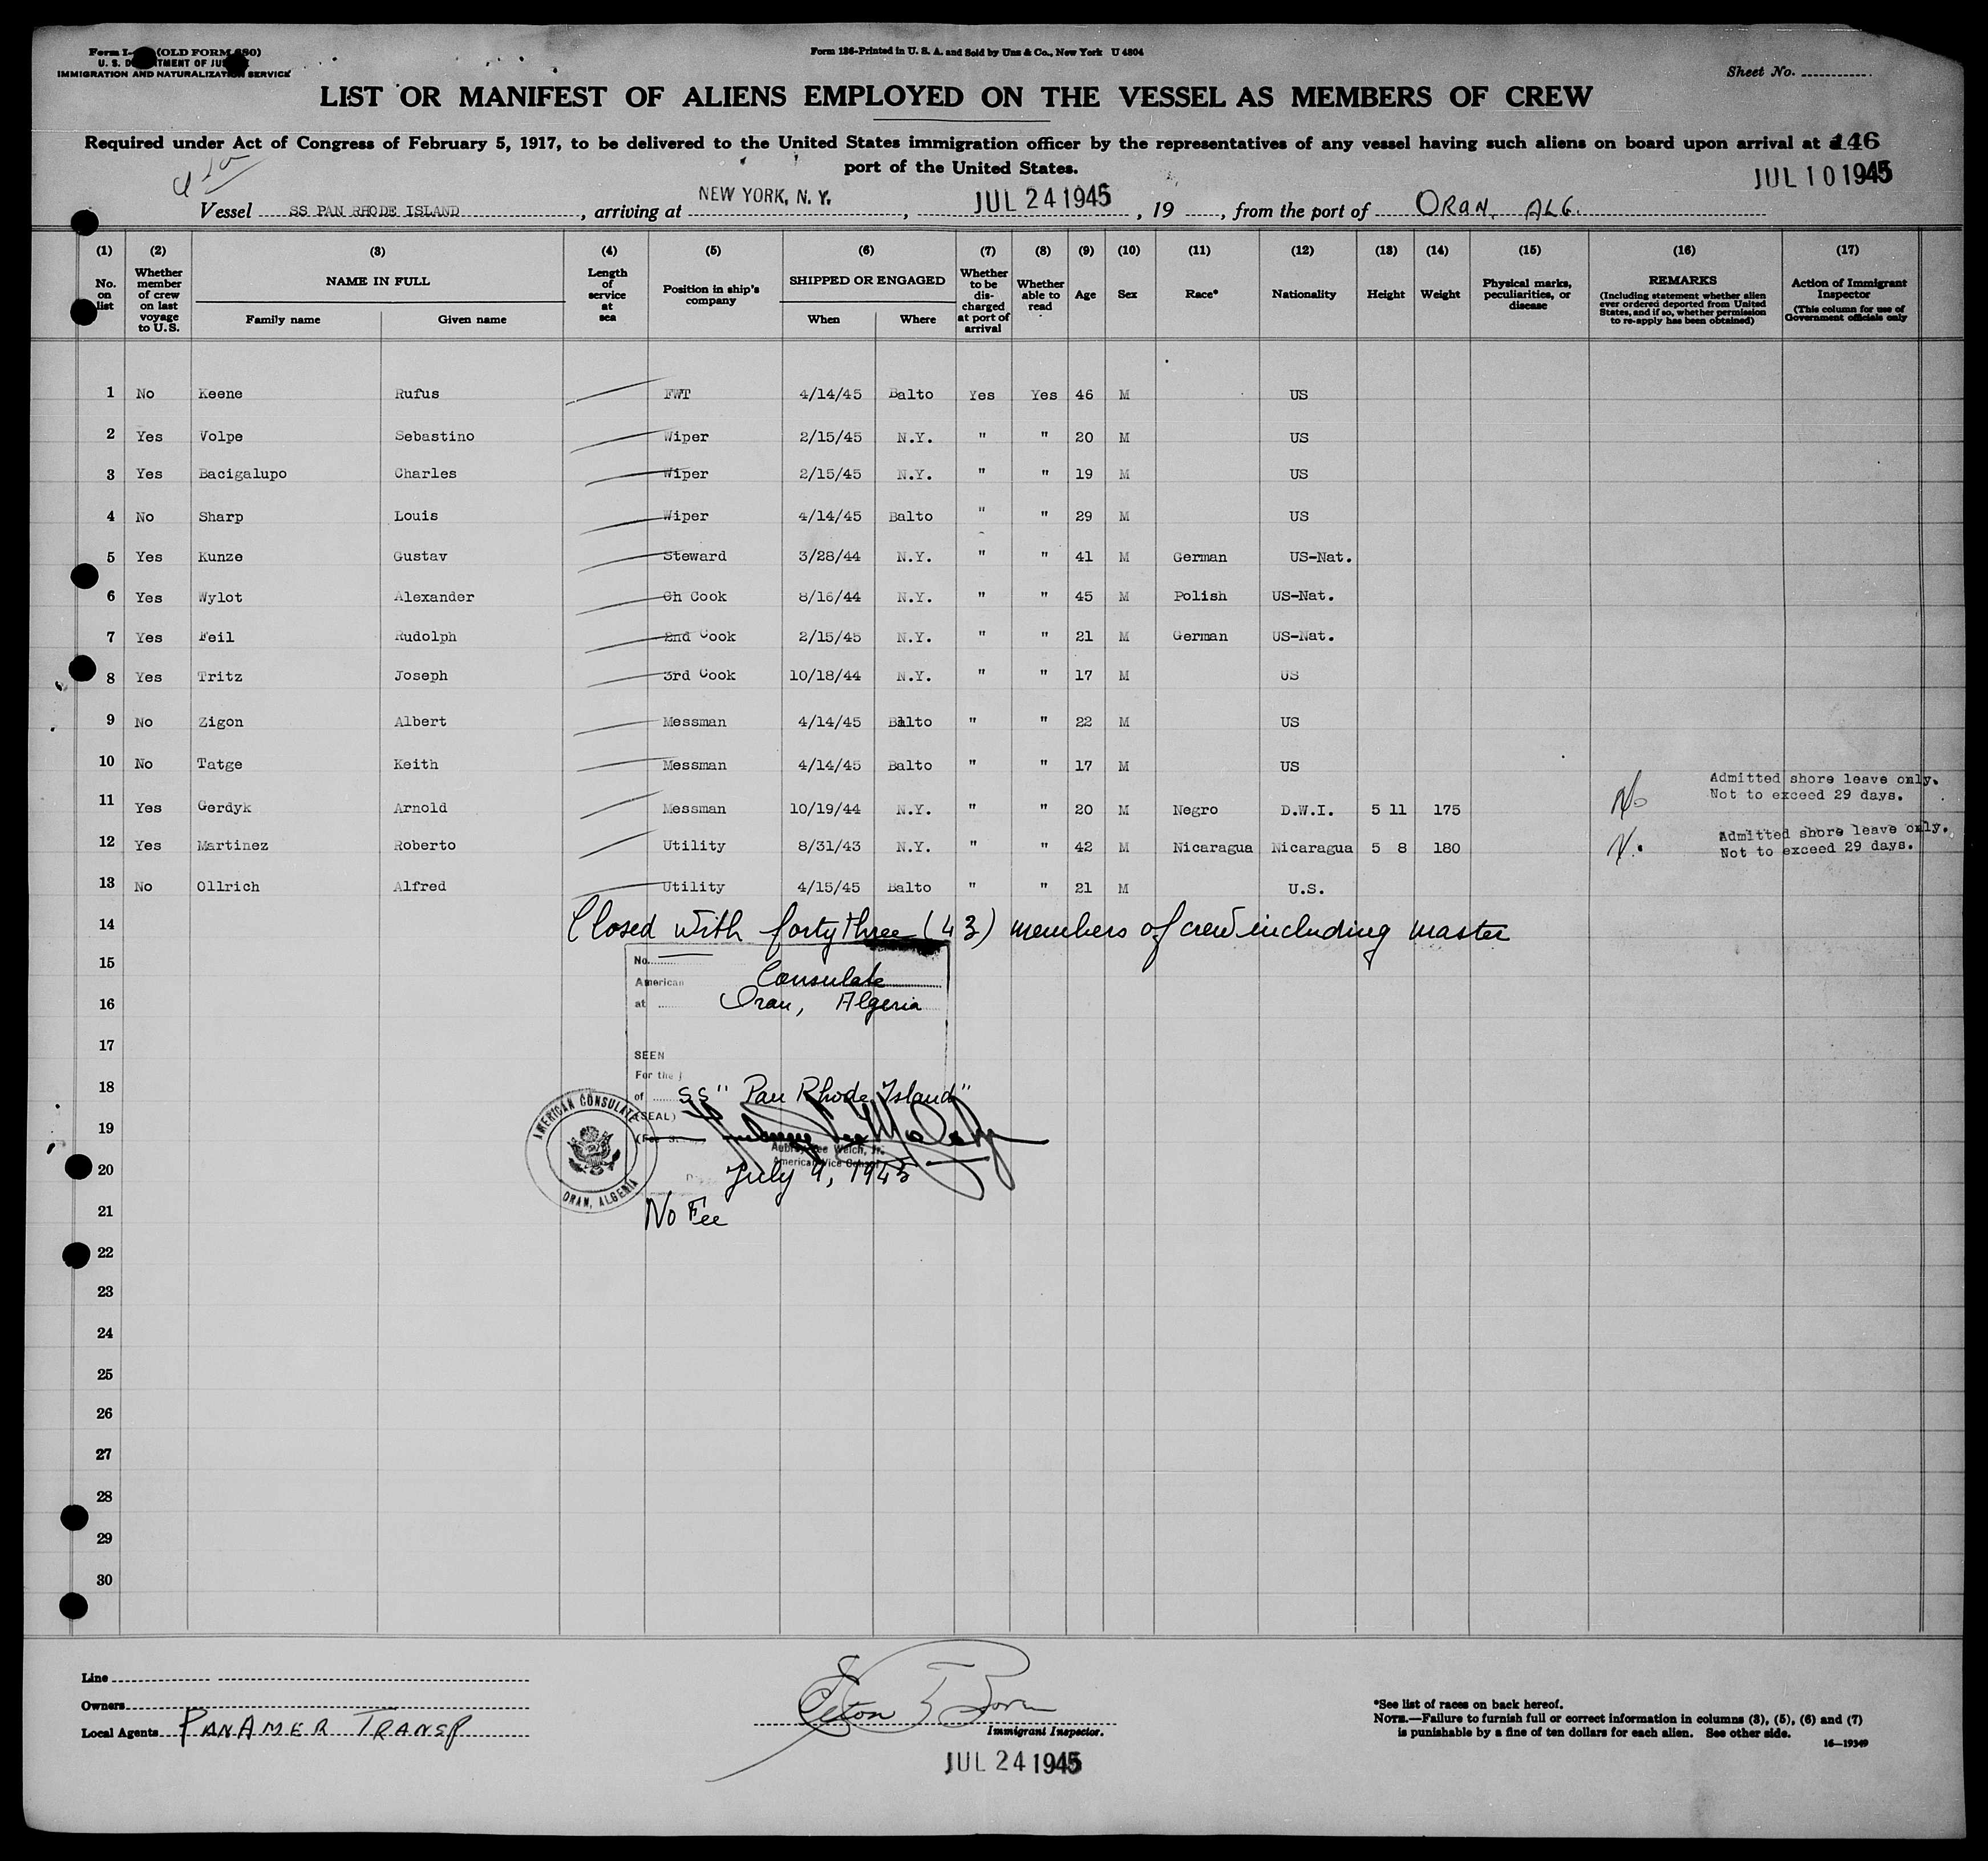 Form I- (OLD FORM 680)
U. S. DEPARTMENT OF JUSTICE
IMMIGRATION AND NATURALIZATION SERVICE
Form 186-Printed in U. S. A. and Sold by Unz & Co., New York U 4804
Sheet No.
LIST OR MANIFEST OF ALIENS EMPLOYED ON THE VESSEL AS MEMBERS OF CREW
Required under Act of Congress of February 5, 1917, to be delivered to the United States immigration officer by the representatives of any vessel having such aliens on board upon arrival at a 146
port of the United States.
JUL 10 1945
Vessel SS PAN RHODE ISLAND, arriving at NEW YORK, N. Y., JUL 24 1945, 19, from the port of ORAN, ALG.
(1) (2) (3) (4) (5) (6) (7) (8) (9) (10) (11) (12) (13) (14) (15) (16) (17)
No. on list
Whether member of crew on last voyage to U.S.
NAME IN FULL
Family name
Given name
Length of service at sea
Position in ship's company
SHIPPED OR ENGAGED
When
Where
Whether to be discharged at port of arrival
Whether able to read
Age
Sex
Race*
Nationality
Height
Weight
Physical marks, peculiarities, or disease
REMARKS
(Including statement whether alien ever ordered deported from United States, and if so, whether permission to re-apply has been obtained)
Action of Immigrant Inspector
(This column for use of Government officials only
1 No Keene Rufus FWT 4/14/45 Balto Yes Yes 46 M US
2 Yes Volpe Sebastino Wiper 2/15/45 N.Y. " " 20 M US
3 Yes Bacigalupo Charles Wiper 2/15/45 N.Y. " " 19 M US
4 No Sharp Louis Wiper 4/14/45 Balto " " 29 M US
5 Yes Kunze Gustav Steward 3/28/44 N.Y. " " 41 M German US-Nat.
6 Yes Wylot Alexander Ch Cook 8/16/44 N.Y. " " 45 M Polish US-Nat.
7 Yes Feil Rudolph 2nd Cook 2/15/45 N.Y. " " 21 M German US-Nat.
8 Yes Tritz Joseph 3rd Cook 10/18/44 N.Y. " " 17 M US
9 No Zigon Albert Messman 4/14/45 Balto " " 22 M US
10 No Tatge Keith Messman 4/14/45 Balto " " 17 M US
11 Yes Gerdyk Arnold Messman 10/19/44 N.Y. " " 20 M Negro D.W.I. 5 11 175 No Admitted shore leave only. Not to exceed 29 days.
12 Yes Martinez Roberto Utility 8/31/43 N.Y. " " 42 M Nicaragua Nicaragua 5 8 180 Admitted shore leave only. Not to exceed 29 days.
13 No Ollrich Alfred Utility 4/15/45 Balto " " 21 M U.S.
14 Closed with forty three (43) members of crew including master
15 No.
American Consulate
16 at Oran, Algeria
17
SEEN
For the
18 of SS "Pan Rhode Island"
(SEAL)
19
Aubrey Lee Welch, Jr.
20 American Vice Consul
July 9, 1945
21 No Fee
AMERICAN CONSULATE
ORAN, ALGERIA
22
23
24
25
26
27
28
29
30
Line
Owners
Local Agents PANAMER TRANSP
Immigrant Inspector.
JUL 24 1945
*See list of races on back hereof.
NOTE.—Failure to furnish full or correct information in columns (3), (5), (6) and (7)
is punishable by a fine of ten dollars for each alien. See other side.
16—19349